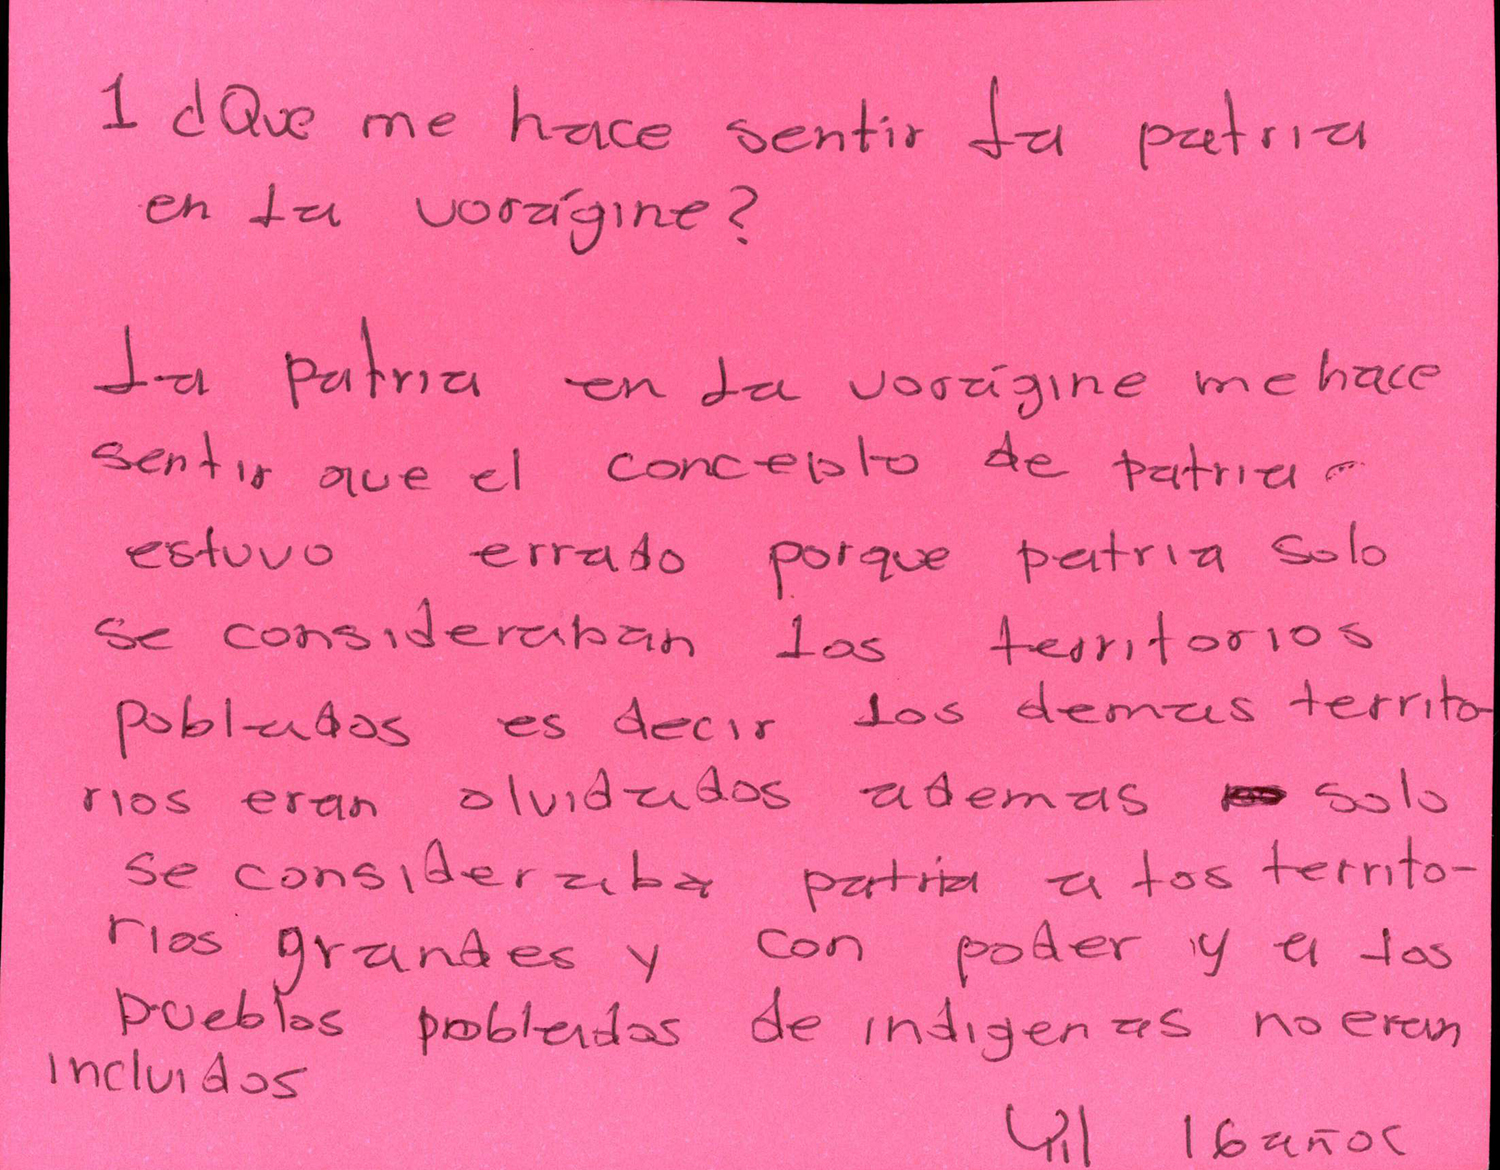 1 ¿Que me hace sentir la patria
en la vorágine?
La patria en la vorágine me hace
sentir que el concepto de patria
estuvo errado porque patria solo
se consideraban los territorios
poblados es decir los demas territo-
rios eran olvidados ademas solo
se consideraba patria a los territo-
rios grandes y con poder y a los
pueblos poblados de indigenas no eran
incluidos
16 años